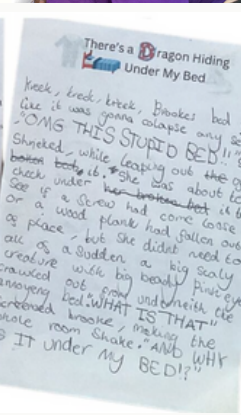 There's a Dragon Hiding
Under My Bed
kreek, kreek, kreek, Brookes bed
like it was gonna colapse any
"OMG THIS STUPID BED!!
Shrieked, while leaping out the
it. She was about to
check under her broken bed it to
see if a screw had come loose
or a wood plank had fallen out
of place, but she didnt need to
all of a sudden a big scaly
creature with big beady Pink eyes
crawled out from underneith the
annoyeng bed. "WHAT IS THAT"
screamed brooke, making the
whole room shake. "AND WHY
IS IT UNDER MY BED!?"